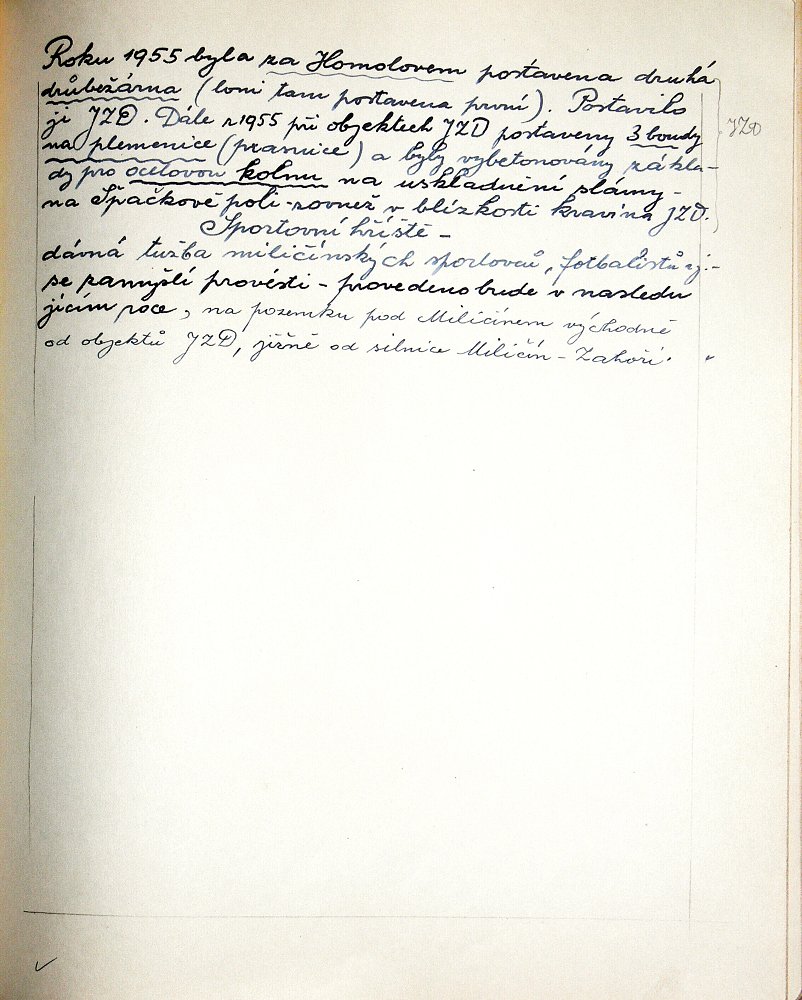 Roku 1955 byla za Homolovem postavena druhá
drůbežárna (loni tam postavena první). Postavilo
ji JZD. Dále r 1955 při objektech JZD postaveny 3 boudy
JZD
na plemenice (prasnice) a byly vybetonovány zákla-
dy pro ocelovou kolnu na uskladnění slámy -
na Špačkově poli - rovněž v blízkosti kravína JZD.
Sportovní hřiště -
dávná tužba miličínských sportovců, fotbalistů aj. -
se zamýšlí provésti - provedeno bude v následu
jícím roce, na pozemku pod Miličínem východně
od objektů JZD, jižně od silnice Miličín - Záhoří.